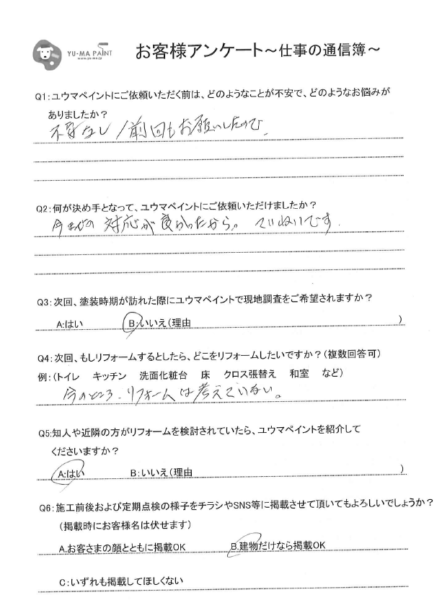 YU-MA PAINT
お客様アンケート～仕事の通信簿～
Q1:ユウマペイントにご依頼いただく前は、どのようなことが不安で、どのようなお悩みが
ありましたか?
不安なし/前回もお願いしたので、
Q2:何が決め手となって、ユウマペイントにご依頼いただけましたか?
今までの対応が良かったから。ていねいです。
Q3:次回、塗装時期が訪れた際にユウマペイントで現地調査をご希望されますか?
A:はい B:いいえ(理由 )
Q4:次回、もしリフォームするとしたら、どこをリフォームしたいですか?(複数回答可)
例:(トイレ キッチン 洗面化粧台 床 クロス張替え 和室 など)
今のところ、リフォームは考えていない。
Q5:知人や近隣の方がリフォームを検討されていたら、ユウマペイントを紹介して
くださいますか?
A:はい B:いいえ(理由 )
Q6:施工前後および定期点検の様子をチラシやSNS等に掲載させて頂いてもよろしいでしょうか?
(掲載時にお客様名は伏せます)
A.お客さまの顔とともに掲載OK B.建物だけなら掲載OK
C:いずれも掲載してほしくない